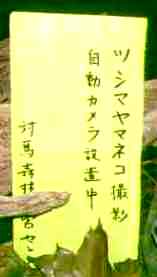 ツシマヤマネコ撮影
自動カメラ設置中
対馬森林